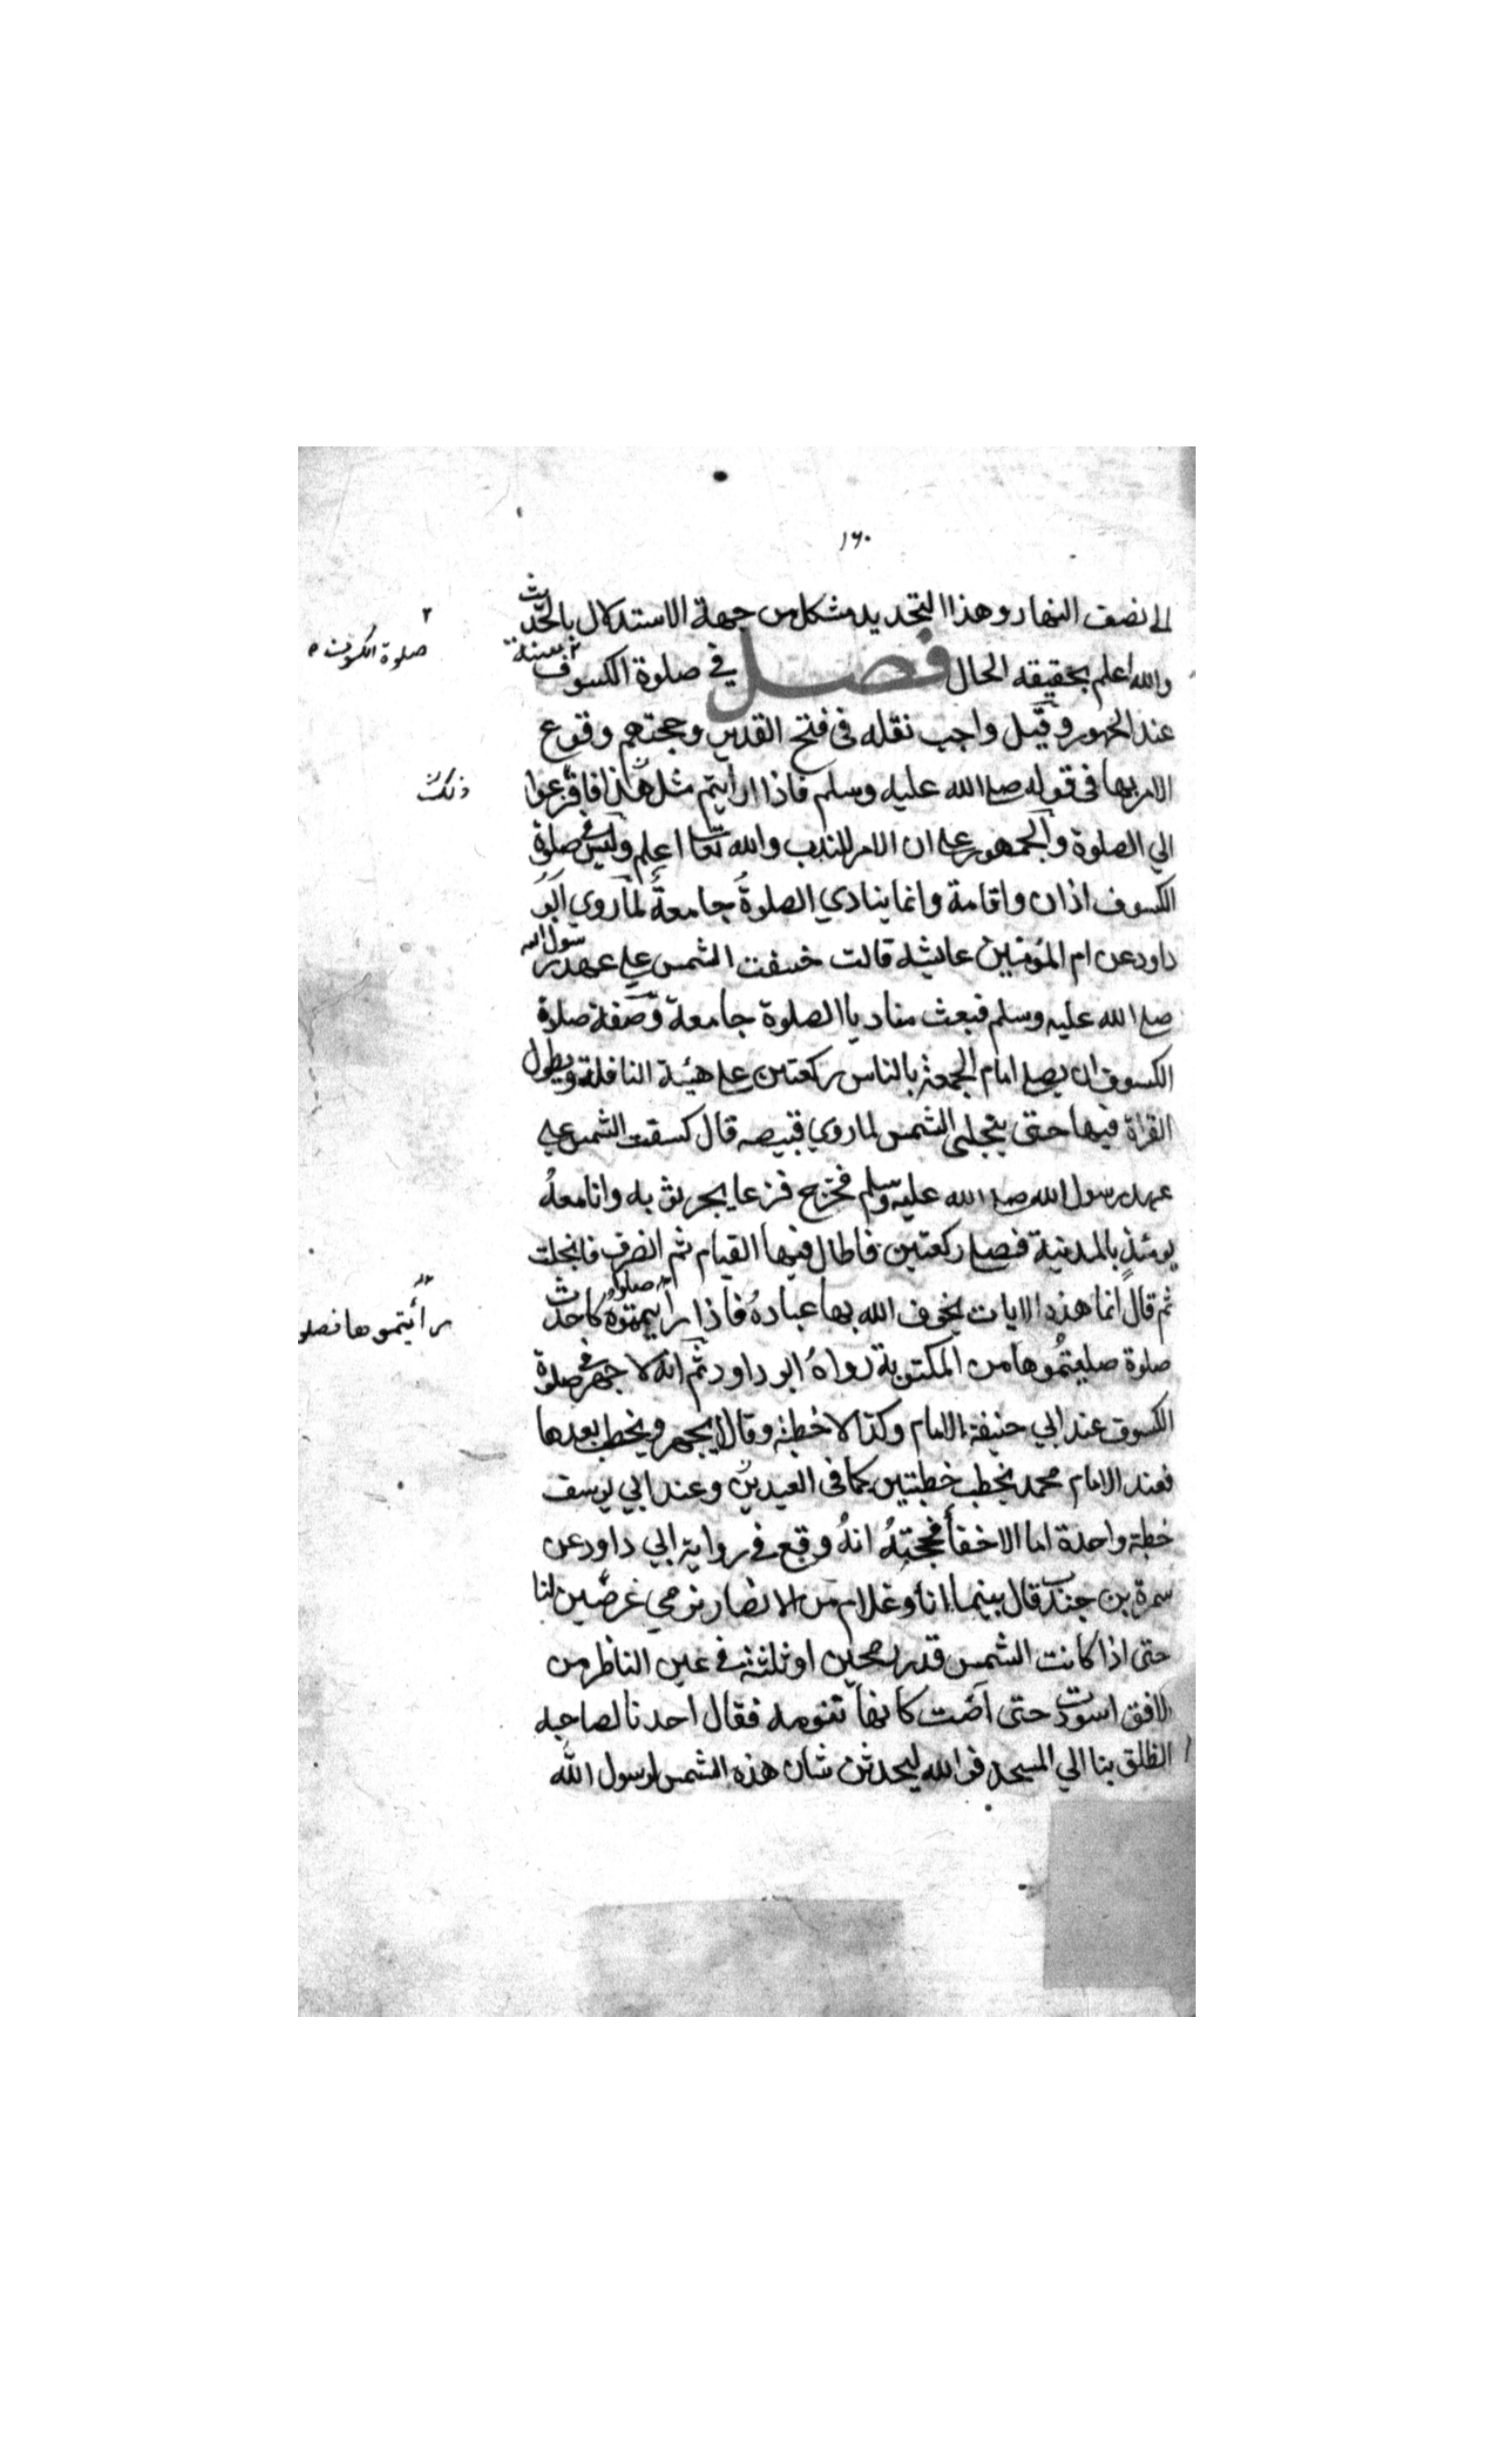 ١٦٠
الى نصف النهار وهذا التحديد مشكل من جهة الاستدلال بالحديث
والله اعلم بحقيقه الحال فصل في صلوة الكسوف سنة
صلوة الكسوف
عند الجمهور وقيل واجب نقله فى فتح القدير وحجتهم وقوع
الامر بها فى قوله صلى الله عليه وسلم فاذا ارايتم مثل هذا فافزعوا
ذلك
الي الصلوة والجمهور على ان الامر للندب والله تعا اعلم وليس في صلوة
الكسوف اذان واقامة وانما ينادي الصلوةُ جامعةً لما روي ابو
داود عن ام المؤمنين عايشه قالت خسفت الشمس علي عهد رسول الله
صلى الله عليه وسلم فبعث مناديا الصلوة جامعة وصفة صلوة
الكسوف ان يصلى امام الجمعة بالناس ركعتين على هيئة النافلة ويطول
القراة فيها حتى ينجلى الشمس لما روي قبيصه قال كسفت الشمس علي
عهد رسول الله صلى الله عليه وسلم فخرج فزعا يجر ثوبه وانا معهُ
يومئذٍ بالمدينة فصلى ركعتين فاطال فيها القيام ثم انصرف فانجلت
ثم قال انما هذه الايات يخوف الله بها عباده فاذا رايتموه صلوا كاحدث
رأيتموها فصلو
صلوة صليتموها من المكتوبة رواهُ ابو داود ثم انه لا جهر في صلوة
الكسوف عند ابي حنيفة الامام وكذا لا خطبة وقالا يجهر ويخطب بعدها
فعند الامام محمد يخطب خطبتين كما فى العيدين وعند ابي يوسف
خطبة واحدة اما الاخفأ فحجتهُ انهُ وقع في رواية ابي داود عن
سمرة بن جندب قال بينما انا وغلام من الانصار نرمي غرضين لنا
حتى اذا كانت الشمس قدر رمحين او ثلثة في عين الناظر من
الافق اسودت حتى آضت كانها تنومه فقال احدنا لصاحبه
انطلق بنا الي المسجد فوالله ليحدثن شان هذه الشمس لرسول الله